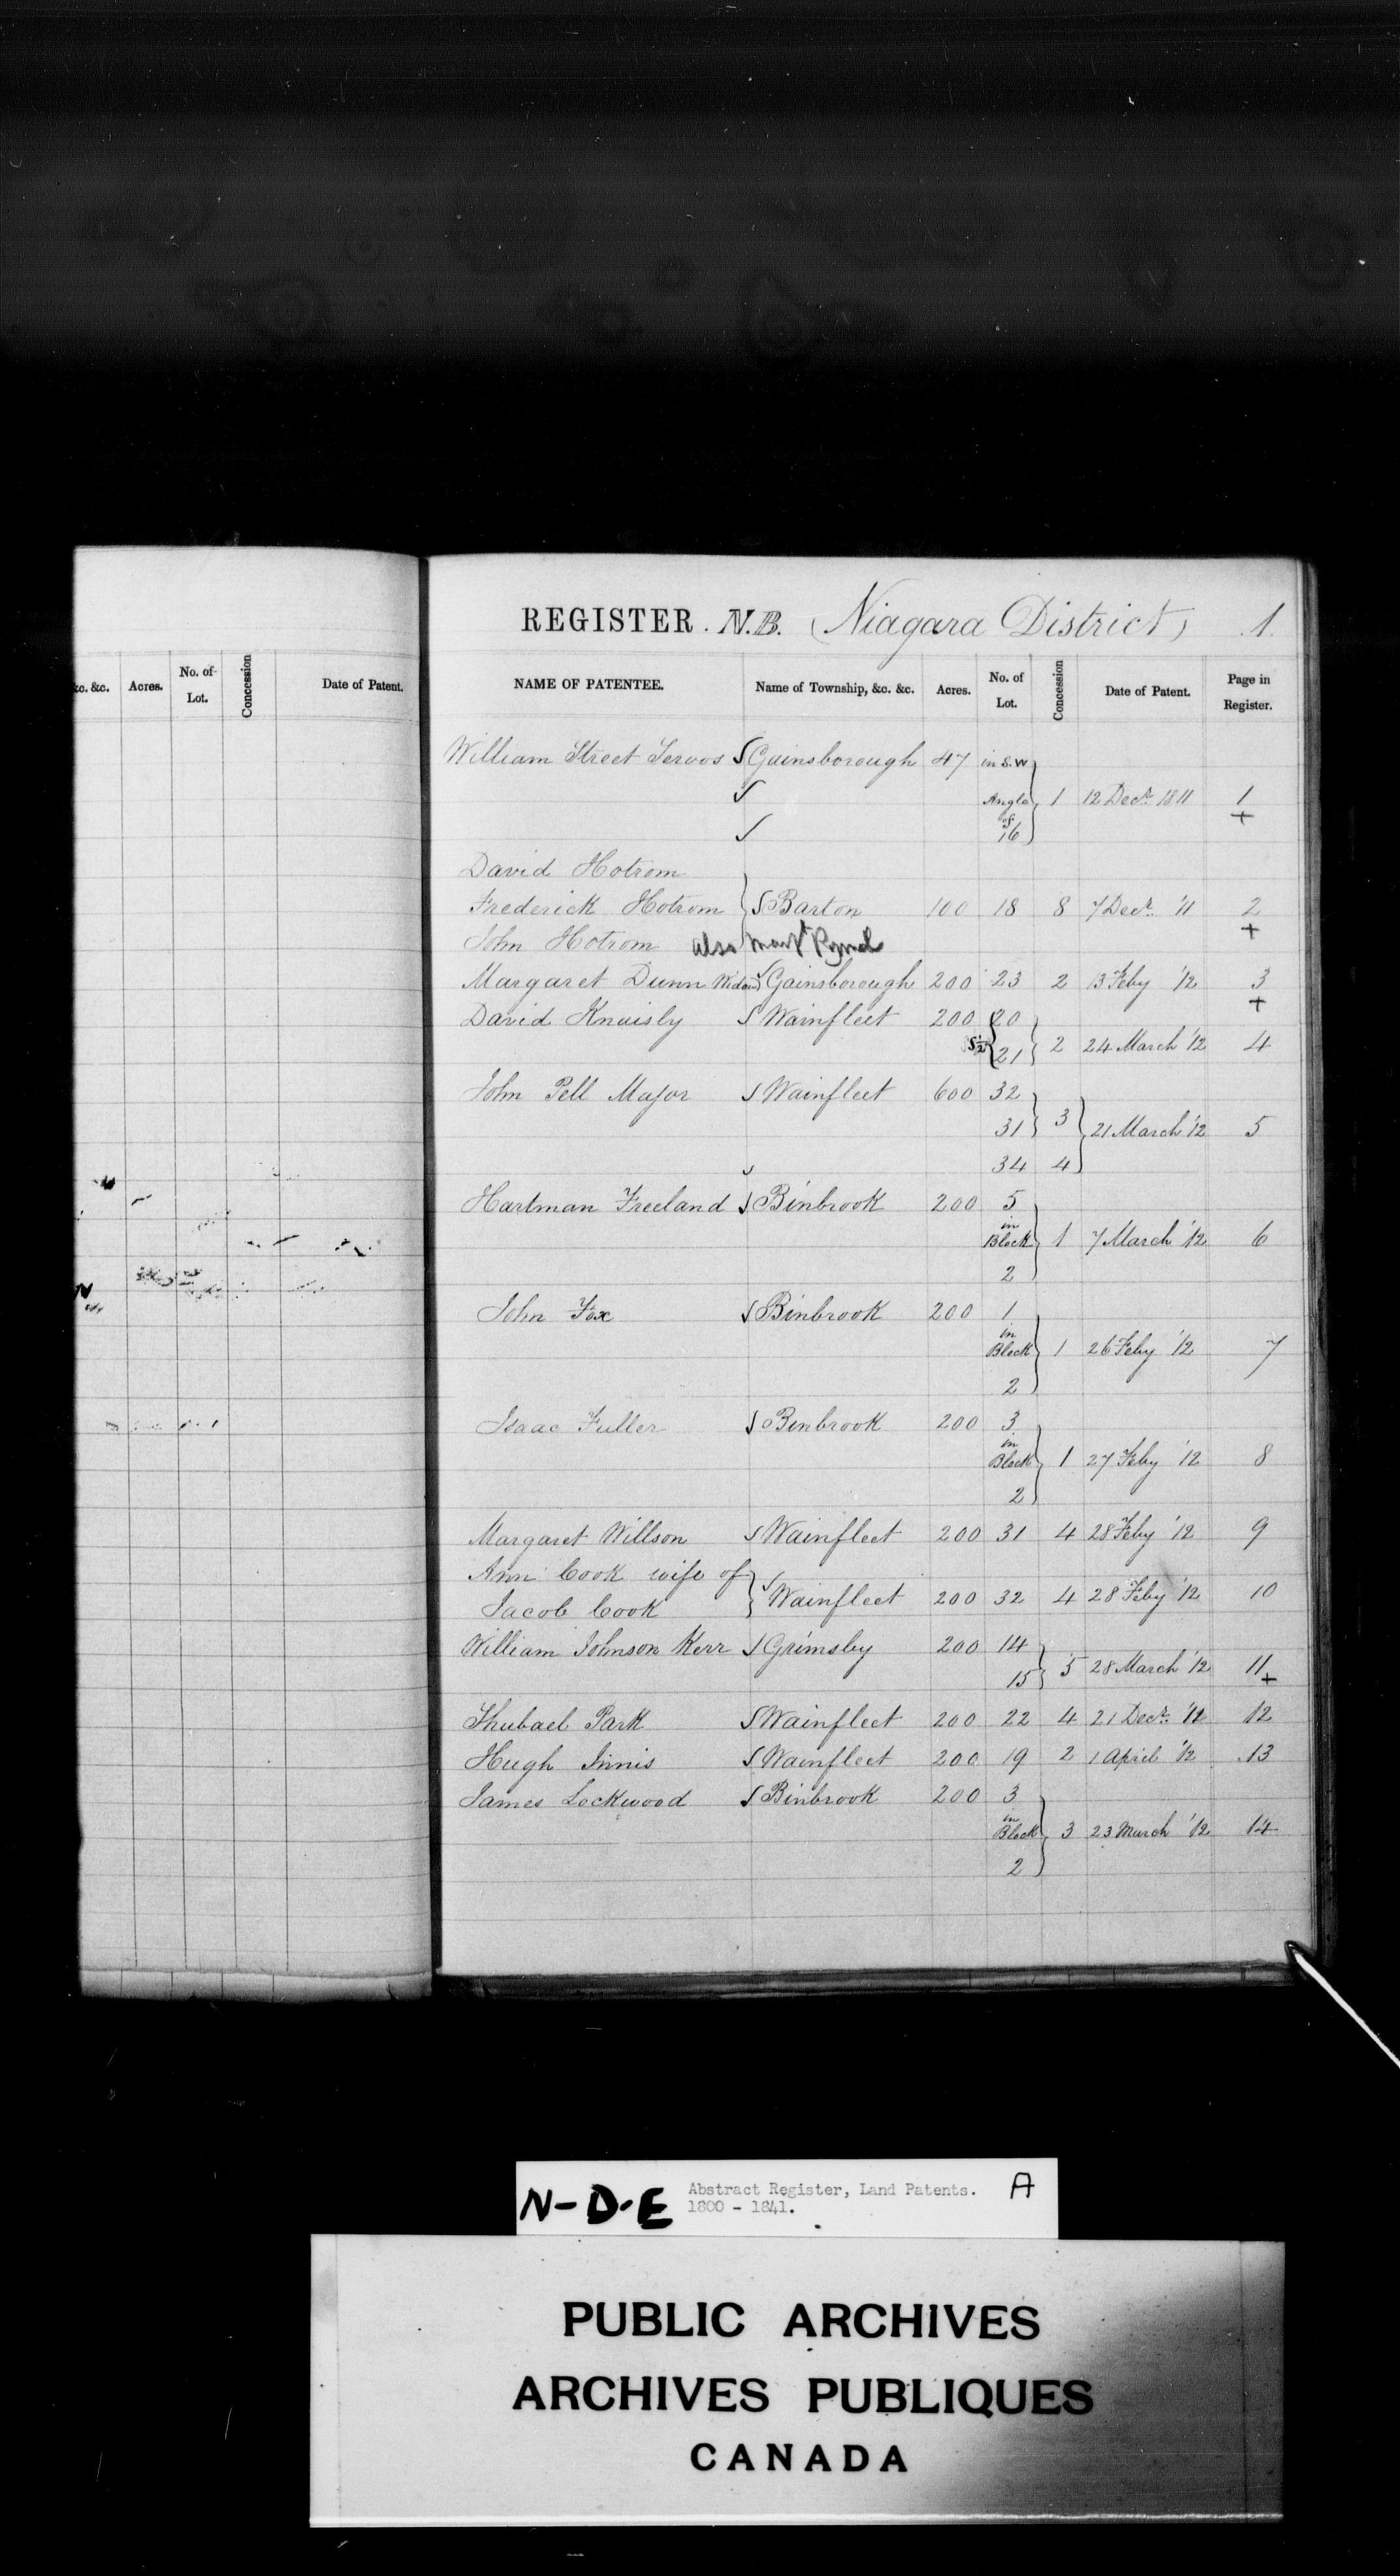 REGISTER. N.B. (Niagara District) 1.
&c. &c. Acres. No. of Lot. Concession Date of Patent.
NAME OF PATENTEE. Name of Township, &c. &c. Acres. No. of Lot. Concession Date of Patent. Page in Register.
William Street Servos Gainsborough 47 in S.W
Angle 1 12 Decr. 1811 1
of +
16
David Hotrom
Frederick Hotrom Barton 100 18 8 7 Decr. '11 2
John Hotrom also +
Margaret Dunn Widow Gainsborough 200 23 2 13 Feby '12 3
+
David Knaisly Wainfleet 200 20
S½ 21 2 24 March '12 4
John Pell Major Wainfleet 600 32
31 3 21 March '12 5
34 4
Hartman Freeland Binbrook 200 5
in
Block 1 7 March '12 6
2
John Fox Binbrook 200 1
in
Block 1 26 Feby '12 7
2
Isaac Fuller Binbrook 200 3
in
Block 1 27 Feby '12 8
2
Margaret Willson Wainfleet 200 31 4 28 Feby '12 9
Ann Cook wife of
Jacob Cook Wainfleet 200 32 4 28 Feby '12 10
William Johnson Kerr Grimsby 200 14
15 5 28 March '12 11
+
Shubael Park Wainfleet 200 22 4 21 Decr. '12 12
Hugh Innis Wainfleet 200 19 2 1 April '12 13
James Lockwood Binbrook 200 3
in
Block 3 23 March '12 14
2
N-D-E Abstract Register, Land Patents. A
1800 - 1841.
PUBLIC ARCHIVES
ARCHIVES PUBLIQUES
CANADA